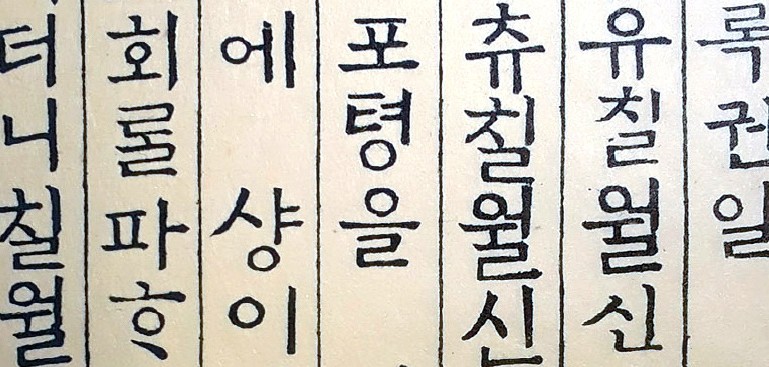 록권일
유칠월신
츄칠월신
포텽을
에 샹이
회ᄅᆞᆯ파ᄒᆞ
더니칠월